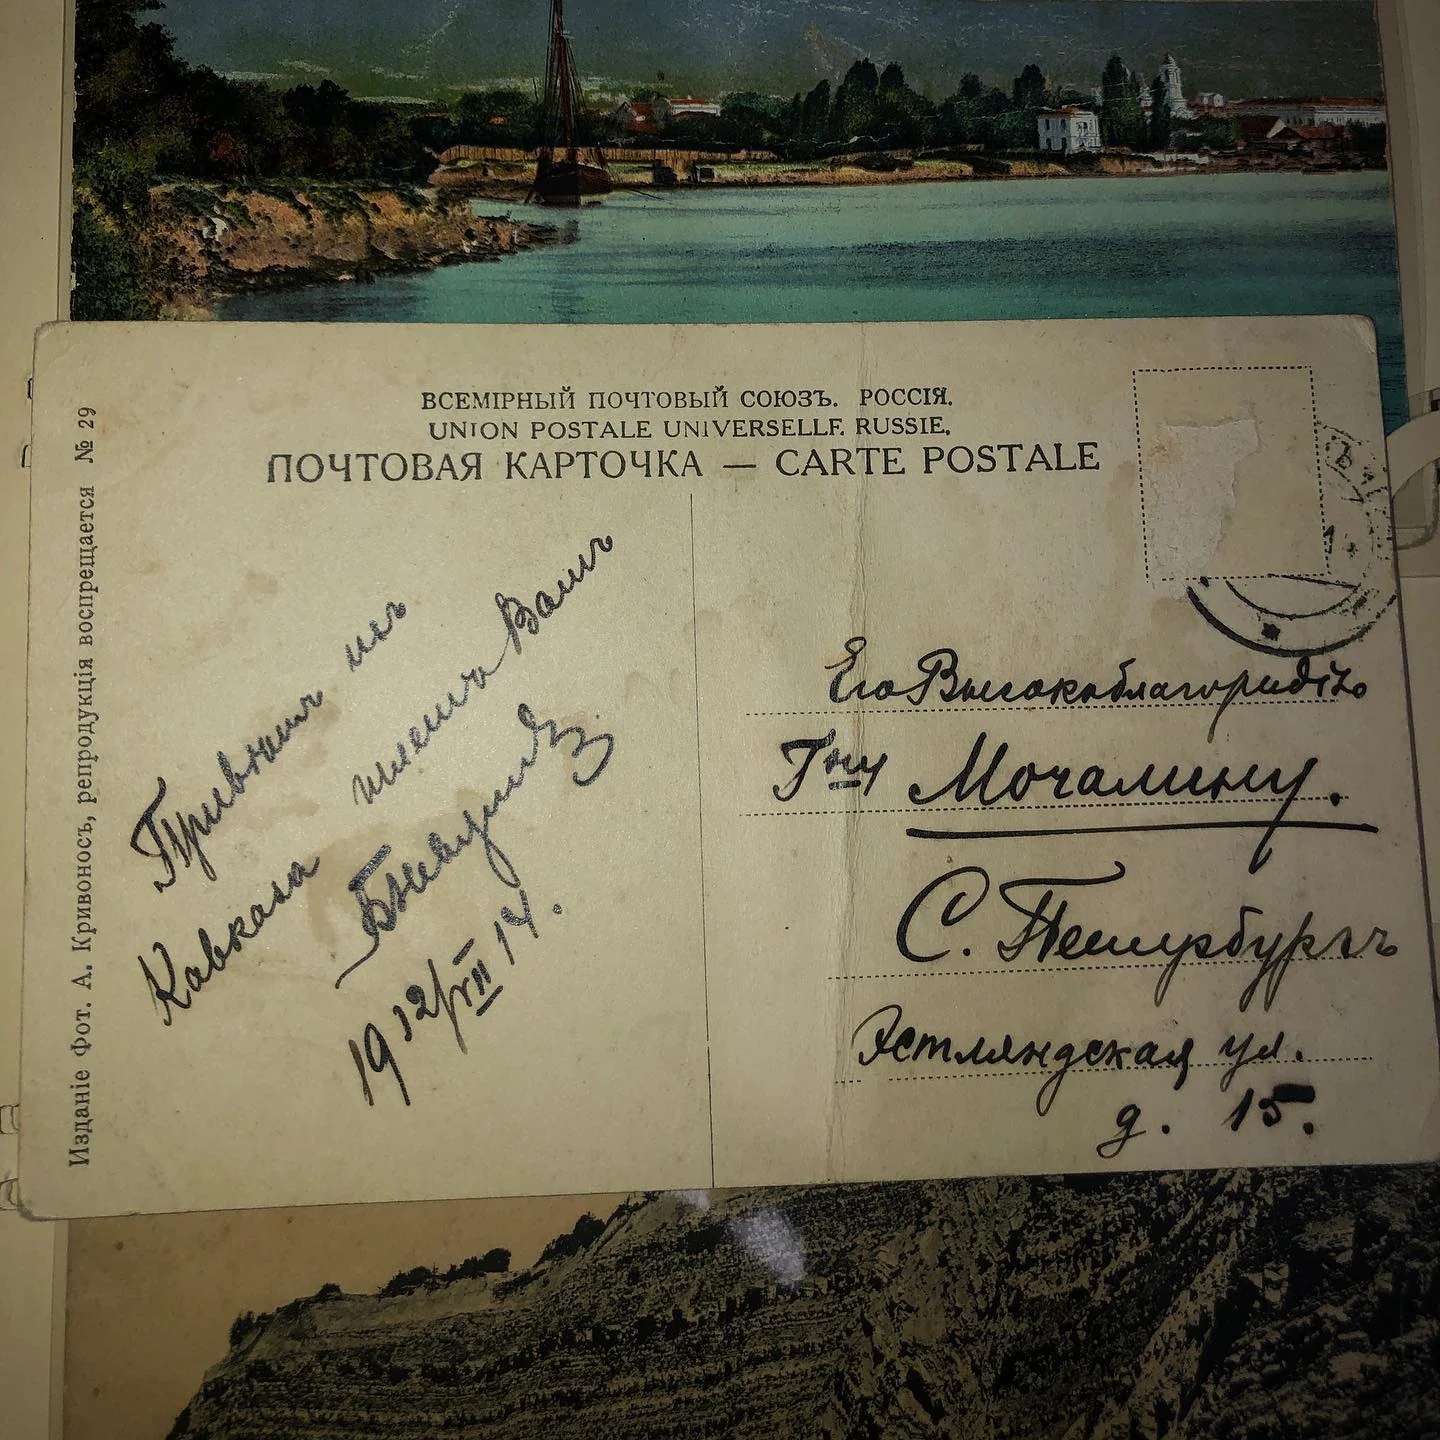 ВСЕМІРНЫЙ ПОЧТОВЫЙ СОЮЗЪ. РОССІЯ.
UNION POSTALE UNIVERSELLE. RUSSIE.
ПОЧТОВАЯ КАРТОЧКА — CARTE POSTALE
Изданіе Фот. А. Кривоносъ, репродукція воспрещается № 29
Привѣтъ изъ
Кавказа шлетъ Вамъ
1912/VII 14.
Его Высокоблагородію
Гну Мочалину.
С. Петербургъ
Эстляндская ул.
д. 15.